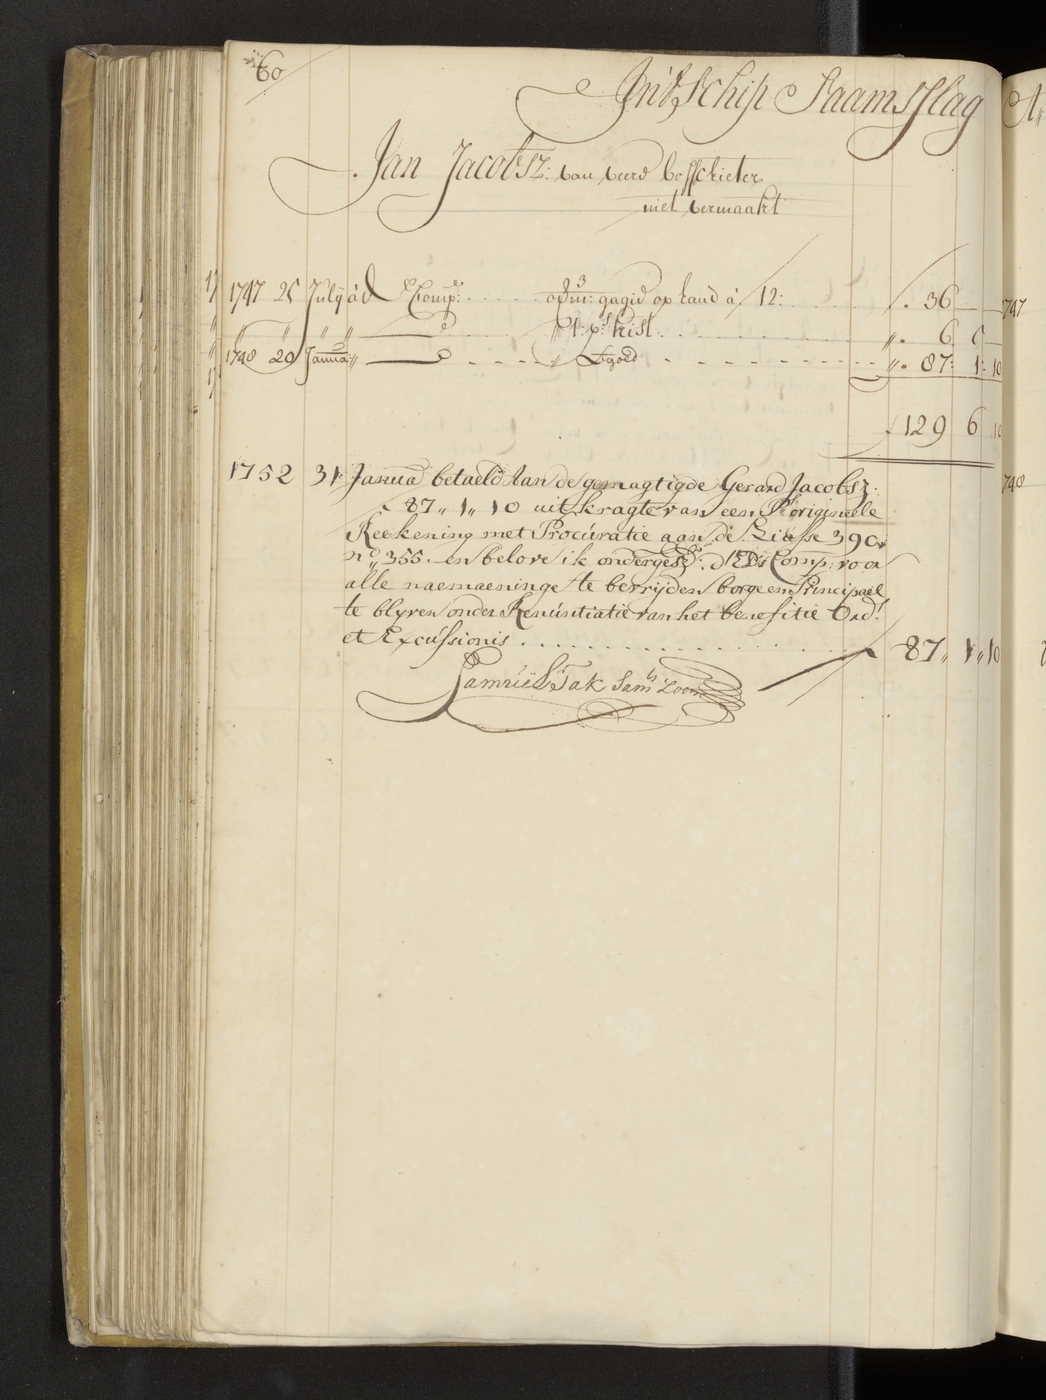 60
In't Schip Saamsslag
Jan Jacobsz: van Veere bosschieter
niet vermaakt
1747 25 July àd E Comp:e op 3 m: gagie op hand à / 12: ƒ. 36
„ „ „ „ „ 1: p:s kist „. 6 5
1748 20 Janua: „ „ tgoed „. 87: 1: 10
ƒ 129 6 10
1752 31 Janua betaeld aan de gemagtigde Gerard Jacobsz:
ƒ 87 „ 1 „ 10 uit kragte van een originiele
Reekening met Procúratie aan de Liasse 390
n:o 355. en belove ik ondergesz: d'E: Comp: voor
alle naemaeninge te bevrijden borge en Principael
te blyven onder Renúntiatie van het benefitie Ord:
et Excussionis 87 „ 1 „ 10
Samúel Tak Sam:ls Zoon